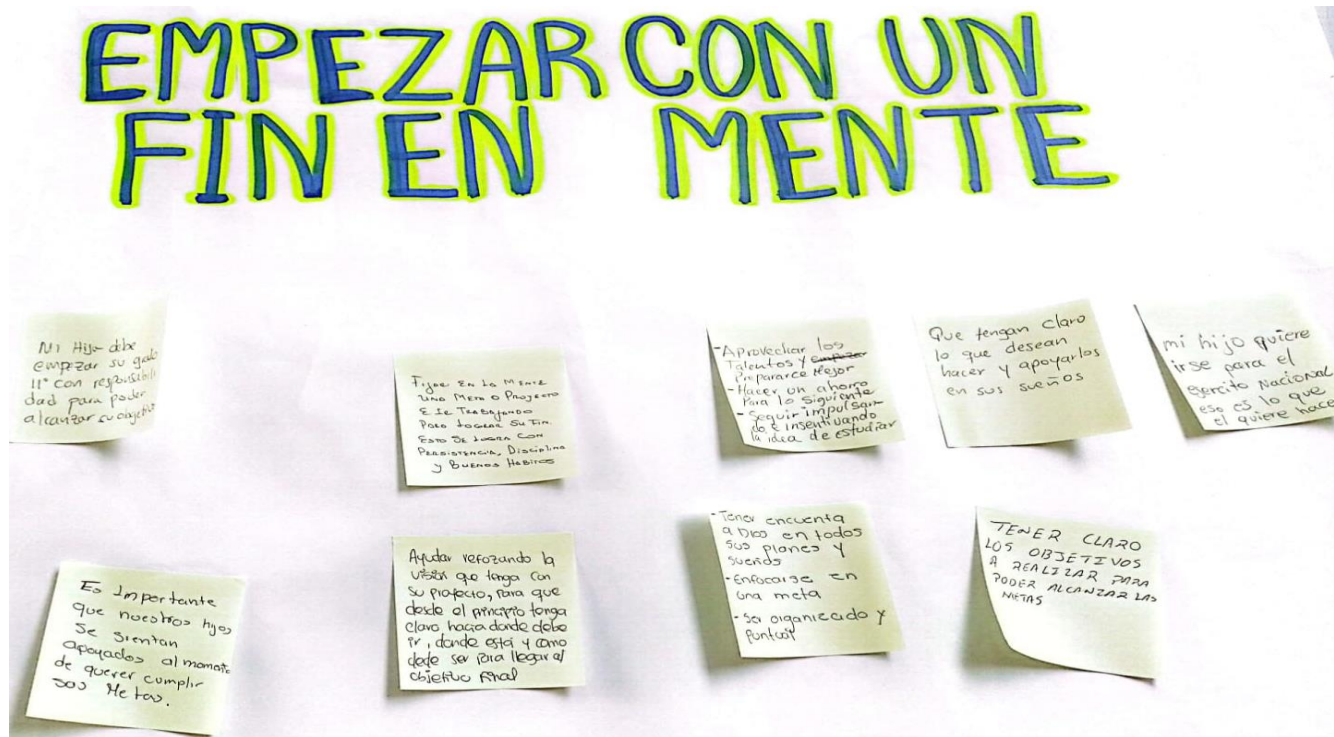 EMPEZAR CON UN
FIN EN MENTE
Mi Hijo debe
empezar su grado
11° con responsabili
dad para poder
alcanzar su objetivo
Fijar En La Mente
Una Meta o Proyecto
E Ir Trabajando
Para Lograr Su Fin.
Esto Se Logra Con
Persistencia, Disciplina
y Buenos Habitos
-Aprovechar los
Talentos y empezar
Prepararce Mejor
-Hacer un ahorro
Para lo siguiente
-Seguir impulsan
do e insentivando
la idea de estudiar
Que tengan claro
lo que desean
hacer y apoyarlos
en sus sueños
mi hijo quiere
irse para el
ejercito Nacional
eso es lo que
el quiere hacer
Es Importante
que nuestros hijos
se sientan
apoyados al momento
de querer cumplir
sus Metas.
Ayudar refozando la
visión que tenga con
su proyecto, para que
desde el principio tenga
claro hacia donde debe
ir, donde está y como
debe ser para llegar al
objetivo final
-Tener encuenta
a Dios en todos
sus planes y
sueños
-Enfocarse en
una meta
-Ser organizado y
puntual
TENER CLARO
LOS OBJETIVOS
A REALIZAR PARA
PODER ALCANZAR LAS
METAS